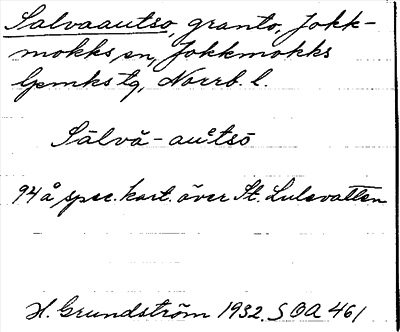 Salvaautso, granto, Jokk-
mokks sn, Jokkmokks
lpmks tg, Norrb. l.
Sälvå-autsō
94 å spec. kart. över St. Lulevatten
H. Grundström 1932. SOA 461